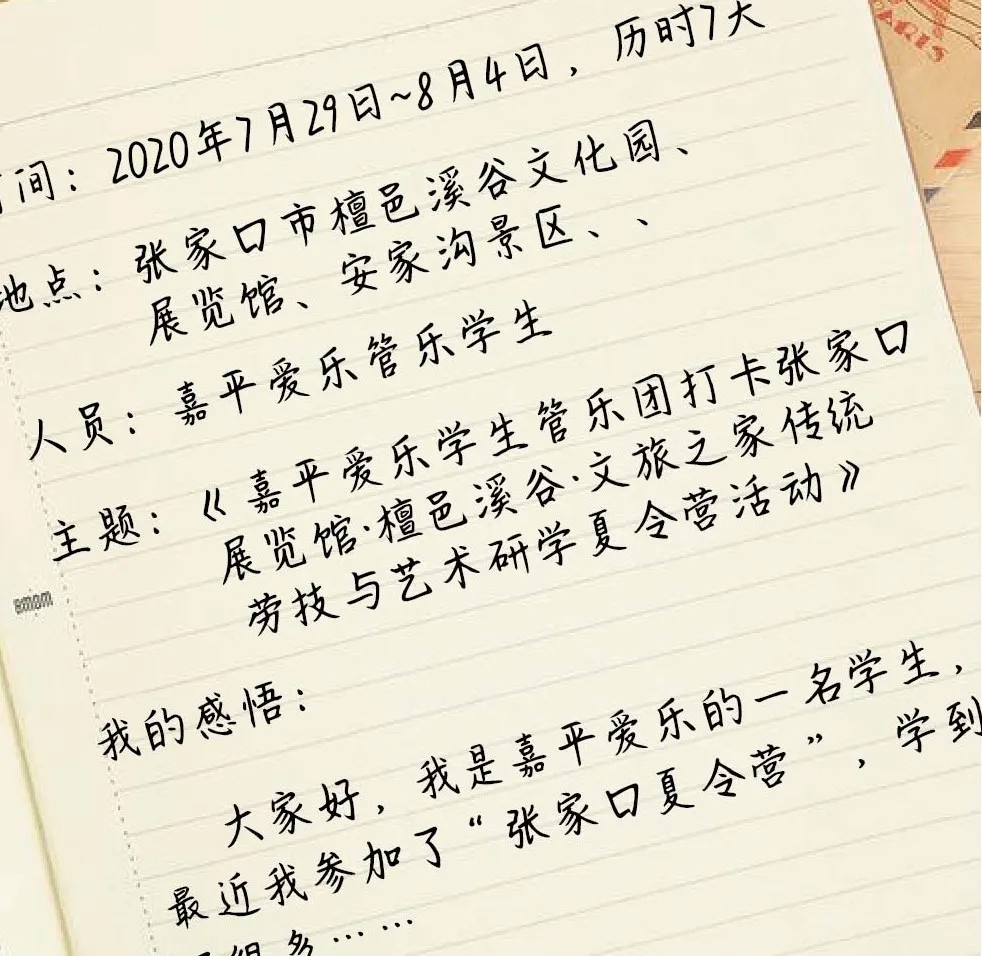 间：2020年7月29日~8月4日，历时7天
地点：张家口市檀邑溪谷文化园、
展览馆、安家沟景区、、
人员：嘉平爱乐管乐学生
主题：《嘉平爱乐学生管乐团打卡张家口
展览馆·檀邑溪谷·文旅之家传统
劳技与艺术研学夏令营活动》
我的感悟：
大家好，我是嘉平爱乐的一名学生，
最近我参加了“张家口夏令营”，学到
很多……
PARIS